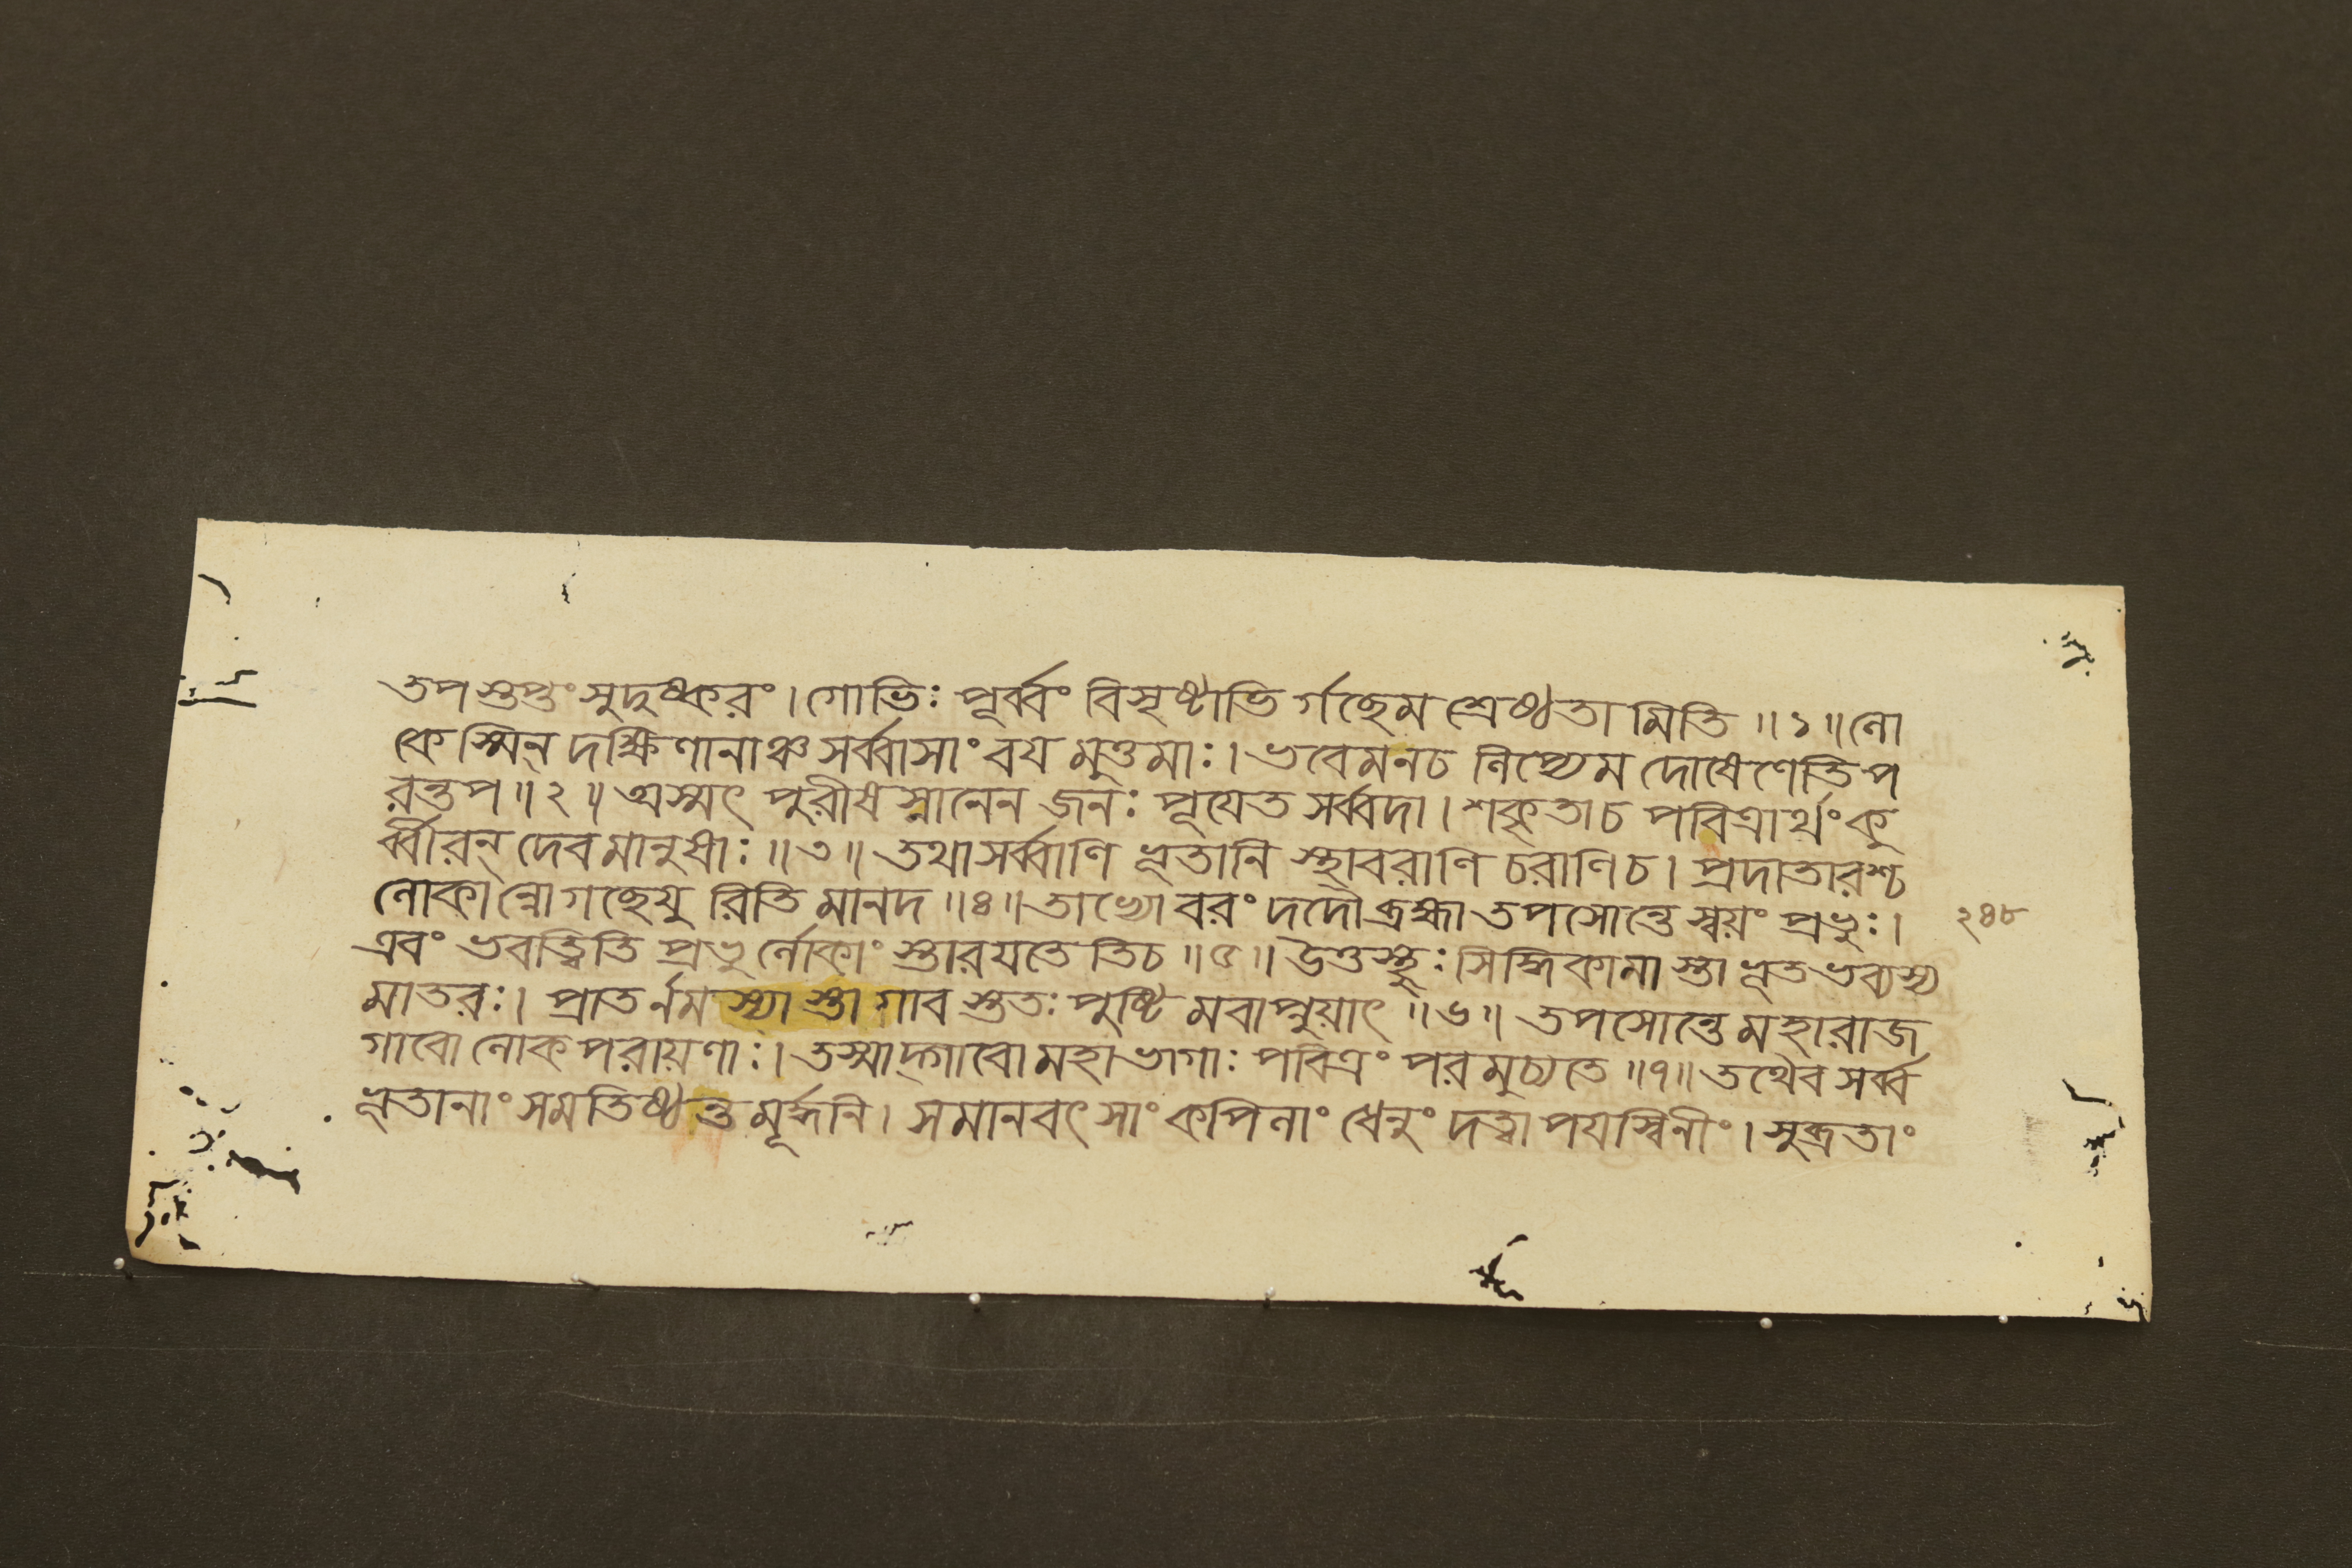 তপস্তপ্তং সুদুষ্করং । গোভিঃ পূর্ব্বং বিসৃষ্টাভি র্গছেম শ্রেষ্ঠতা মিতি ॥ ১ ॥ লো
কেস্মিন্ দক্ষিণানাঞ্চ সর্ব্বাসাং বয মুত্তমাঃ । ভবেম নচ লিপ্যেম দোষেণেতি প
রন্তপ ॥ ২ ॥ অস্মৎ পুরীষ স্নানেন জনঃ পূযেত সর্ব্বদা । শকৃতাচ পবিত্রার্থং কু
র্ব্বীরন্ দেব মানুষাঃ ॥ ৩ ॥ তথা সর্ব্বাণি ভূতানি স্থাবরাণি চরাণিচ । প্রদাতারশ্চ
লোকান্নো গছেযু রিতি মানদ ॥ ৪ ॥ তাভ্যো বরং দদৌ ব্রহ্মা তপসোন্তে স্বয়ং প্রভুঃ ।
২৪৮
এবং ভবত্ত্বিতি প্রভু র্লোকাং স্তারযতে তিচ ॥ ৫ ॥ উত্তস্থুঃ সিদ্ধিকামা স্তা ভূত ভব্যস্য
মাতরঃ । প্রাত র্নমস্যা স্তা গাব স্ততঃ পুষ্টি মবাপ্নুয়াৎ ॥ ৬ ॥ তপসোন্তে মহারাজ
গাবো লোক পরায়ণাঃ । তস্মাদ্গাবো মহাভাগাঃ পবিত্রং পরমুচ্যতে ॥ ৭ ॥ তথৈব সর্ব্ব
ভূতানাং সমতিষ্ঠন্ত মূর্দ্ধনি । সমানবৎসাং কপিলাং ধেনুং দত্বা পযস্বিনীং । সুব্রতাং